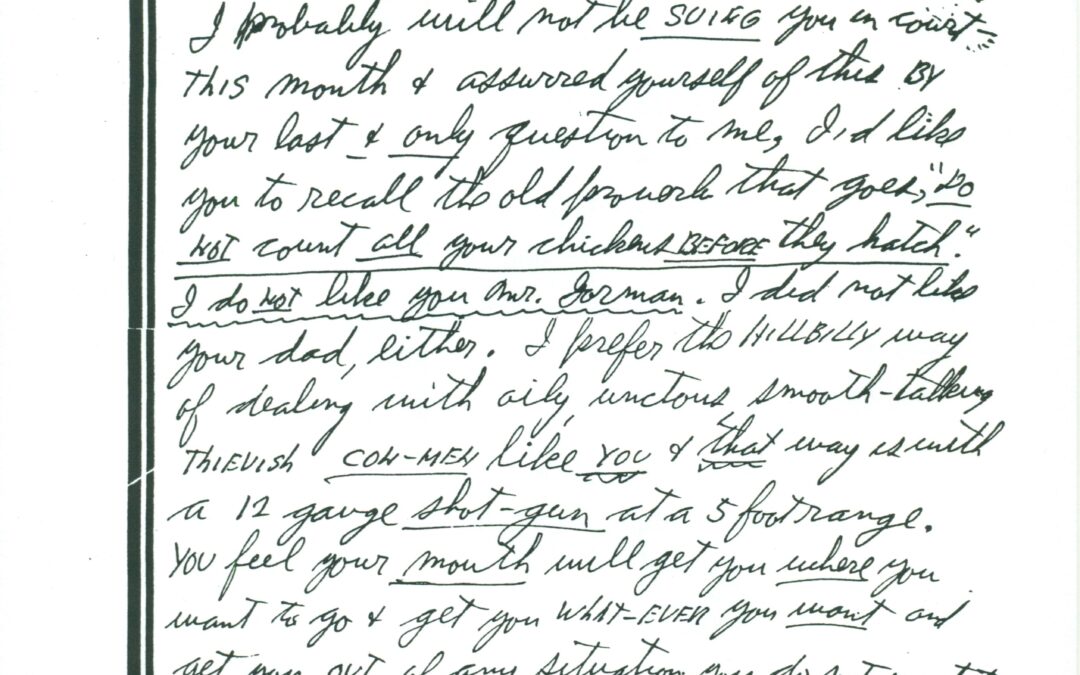 I probably will not be SUING you in court
THIS month & assurred yourself of this BY
your last & only question to me, I'd like
you to recall the old proverb that goes, "DO
NOT count all your chickens BEFORE they hatch".
I do NOT like you Mr. Gorman. I did not like
your dad, either. I prefer the HILLBILLY way
of dealing with oily, unctous, smooth-talking
THIEVISH CON-MEN like YOU & "that way is with
a 12 gauge shot-gun at a 5 foot range.
YOU feel your mouth will get you where you
want to go & get you WHAT-EVER you want and
get you out of any situation you